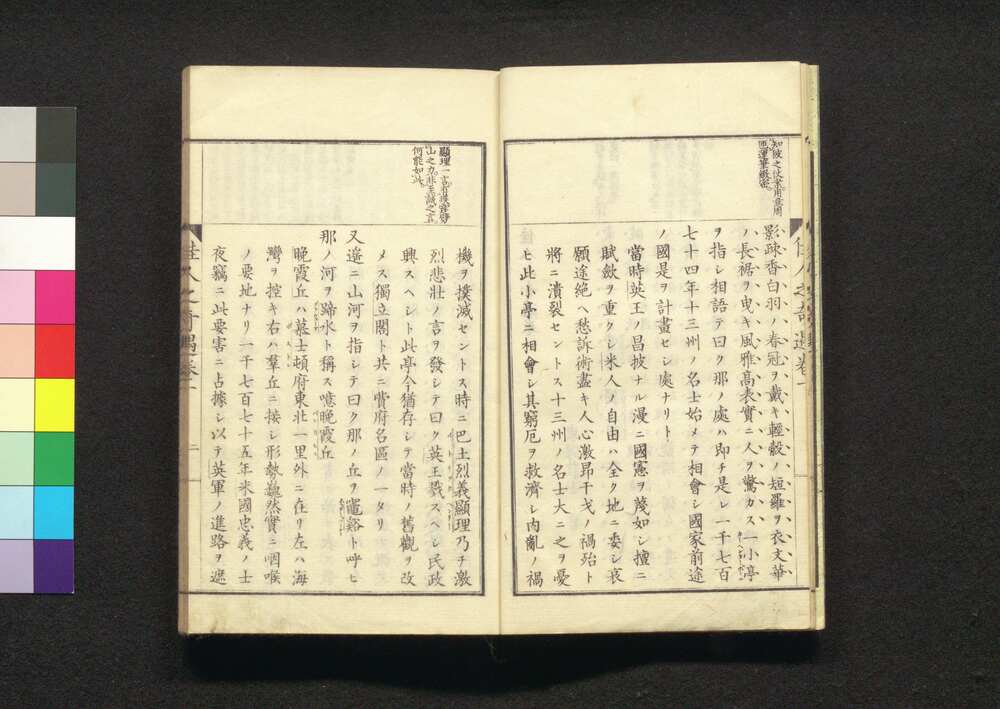 知彼之仗
影疎香白羽ノ春冠ヲ戴キ輕縠ノ短羅ヲ衣文華
ノ長裾ヲ曳キ風雅高表實ニ人ヲ驚カス一小亭
ヲ指シ相語テ曰ク那ノ處ハ即チ是レ一千七百
七十四年十三州ノ名士始メテ相會シ國家前途
ノ國是ヲ計畫セシ處ナリト
當時英王ノ昌披ナル漫ニ國憲ヲ蔑如シ擅ニ
賦斂ヲ重クシ米人ノ自由ハ全ク地ニ委シ哀
願途絶ヘ愁訴術盡キ人心激昂干戈ノ禍殆ト
將ニ潰裂セントス十三州ノ名士大ニ之ヲ憂
ヒ此小亭ニ相會シ其窮厄ヲ救濟シ内亂ノ禍
佳人之奇遇卷一
顯理一言
山之力非至誠之言
何能如此
機ヲ撲滅セントス時ニ巴土烈義顯理乃チ激
烈悲壯ノ言ヲ發シテ曰ク英王戮スヘシ民政
興スヘシト此亭今猶存シテ當時ノ舊觀ヲ改
メス獨立閣ト共ニ費府名區ノ一タリ
又遙ニ山河ヲ指シテ曰ク那ノ丘ヲ竈谿ト呼ヒ
那ノ河ヲ蹄水ト稱ス噫晩霞丘
晩霞丘ハ慕士頓府東北一里外ニ在リ左ハ海
灣ヲ控キ右ハ羣丘ニ接シ形勢巍然實ニ咽喉
ノ要地ナリ一千七百七十五年米國忠義ノ士
夜竊ニ此要害ニ占據シ以テ英軍ノ進路ヲ遮
佳人之奇遇卷一